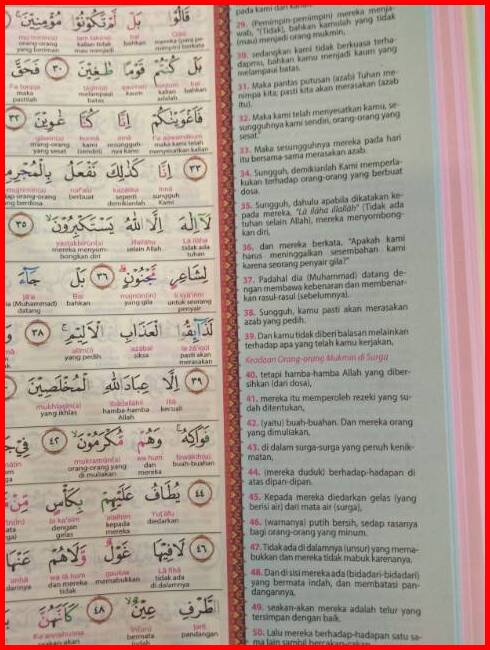 قَالُوْا بَلْ لَّمْ تَكُوْنُوْا مُؤْمِنِيْنَ
mu'minin(a) lam takūnū bal Qālū
orang-orang yang beriman kalian tidak mau menjadi bahkan mereka (para pemimpin) berkata
بَلْ كُنْتُمْ قَوْمًا طٰغِيْنَ ٣٠ فَحَقَّ
Fa ḥaqqa ṭāgīn(a) qauman kuntum bal
maka pastilah melampaui batas kaum kalian adalah bahkan
فَاَغْوَيْنٰكُمْ اِنَّا كُنَّا غٰوِيْنَ ٣٢
gāwīn(a) kunnā innā Fa agwainākum
orang-orang yang sesat kami (sendiri) sesungguhnya kami maka kami telah menyesatkan kalian
٣٣ اِنَّا كَذٰلِكَ نَفْعَلُ بِالْمُجْرِمِ
naf'alu każālika Innā
berbuat seperti demikianlah sungguh Kami
لَآ اِلٰهَ اِلَّا اللّٰهُ يَسْتَكْبِرُوْنَ ٣٥
yastakbirūn(a) illallāhu Lā ilāha
mereka menyombongkan diri selain Allah tidak ada tuhan
لِشَاعِرٍ مَّجْنُوْنٍ ٣٦ بَلْ جَاۤءَ
jā'a Bal majnūn(in) li syā'irin
dia (Muhammad) datang Bahkan yang gila untuk seorang penyair
لَذَاۤىِٕقُوا الْعَذَابِ الْاَلِيْمِ ٣٨
alīm(i) 'ażābil la żā'iqul
yang pedih siksa pasti akan merasakan
٣٩ اِلَّا عِبَادَ اللّٰهِ الْمُخْلَصِيْنَ
mukhlaṣīn(a) 'ibādallāhil Illā
yang ikhlas hamba-hamba Allah kecuali
فَوَاكِهُ وَهُمْ مُّكْرَمُوْنَ ٤٢ فِيْ جَ
mukramūn(a) wa hum Fawākih(u)
orang-orang yang di muliakan dan mereka buah-buahan
٤٤ يُطَافُ عَلَيْهِمْ بِكَأْسٍ مِّنْ
bi ka'sim 'alaihim Yuṭāfu
dengan gelas kepada mereka diedarkan
٤٦ لَا فِيْهَا غَوْلٌ وَّلَا هُمْ عَنْهَا
'anhā wa lā hum gauluw Lā fīhā
darinya dan mereka tidak memabukkan tidak ada di dalamnya
طَّرْفِ عِيْنٌ ٤٨ كَاَنَّهُنَّ
Ka'annahunna 'īn(un) ṭarfi
seakan-akan bermata indah pandangan
pada kami dari kanan."
29. (Pemimpin-pemimpin) mereka menja-
wab, "(Tidak), bahkan kamulah yang tidak
(mau) menjadi orang mukmin,
30. sedangkan kami tidak berkuasa terha-
dapmu, bahkan kamu menjadi kaum yang
melampaui batas.
31. Maka pantas putusan (azab) Tuhan me-
nimpa kita; pasti kita akan merasakan (azab
itu).
32. Maka kami telah menyesatkan kamu, se-
sungguhnya kami sendiri, orang-orang yang
sesat."
33. Maka sesungguhnya mereka pada hari
itu bersama-sama merasakan azab.
34. Sungguh, demikianlah Kami memperla-
kukan terhadap orang-orang yang berbuat
dosa.
35. Sungguh, dahulu apabila dikatakan ke-
pada mereka, "Lā ilāha illallāh" (Tidak ada
tuhan selain Allah), mereka menyombong-
kan diri,
36. dan mereka berkata, "Apakah kami
harus meninggalkan sesembahan kami
karena seorang penyair gila?"
37. Padahal dia (Muhammad) datang de-
ngan membawa kebenaran dan membenar-
kan rasul-rasul (sebelumnya).
38. Sungguh, kamu pasti akan merasakan
azab yang pedih.
39. Dan kamu tidak diberi balasan melainkan
terhadap apa yang telah kamu kerjakan,
Keadaan Orang-orang Mukmin di Surga
40. tetapi hamba-hamba Allah yang diber-
sihkan (dari dosa),
41. mereka itu memperoleh rezeki yang su-
dah ditentukan,
42. (yaitu) buah-buahan. Dan mereka orang
yang dimuliakan,
43. di dalam surga-surga yang penuh kenik-
matan,
44. (mereka duduk) berhadap-hadapan di
atas dipan-dipan.
45. Kepada mereka diedarkan gelas (yang
berisi air) dari mata air (surga),
46. (warnanya) putih bersih, sedap rasanya
bagi orang-orang yang minum.
47. Tidak ada di dalamnya (unsur) yang mema-
bukkan dan mereka tidak mabuk karenanya,
48. Dan di sisi mereka ada (bidadari-bidadari)
yang bermata indah, dan membatasi pan-
dangannya,
49. seakan-akan mereka adalah telur yang
tersimpan dengan baik.
50. Lalu mereka berhadap-hadapan satu sa-
ma lain sambil bercakap-cakap.